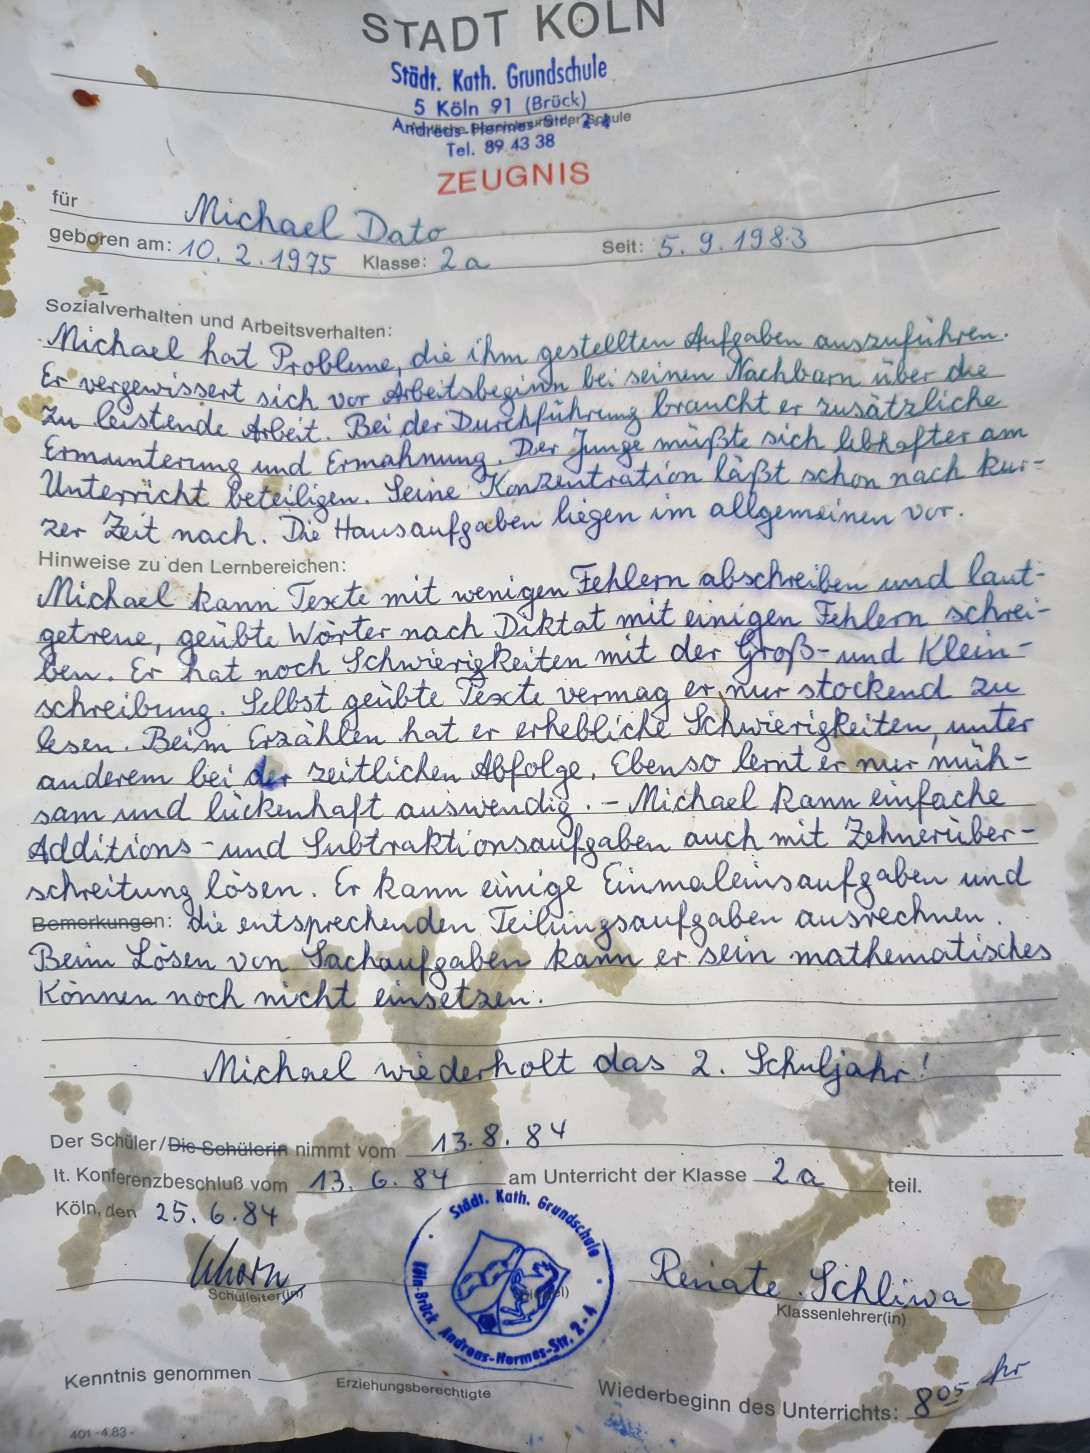 STADT KÖLN
Städt. Kath. Grundschule
5 Köln 91 (Brück)
Andreas-Hermes-Str. 2-4
Tel. 89 43 38
ZEUGNIS
für Michael Dato
geboren am: 10.2.1975 Klasse: 2a Seit: 5.9.1983
Sozialverhalten und Arbeitsverhalten:
Michael hat Probleme, die ihm gestellten Aufgaben auszuführen.
Er vergewissert sich vor Arbeitsbeginn bei seinen Nachbarn über die
zu leistende Arbeit. Bei der Durchführung braucht er zusätzliche
Ermunterung und Ermahnung. Der Junge müßte sich lebhafter am
Unterricht beteiligen. Seine Konzentration läßt schon nach kur-
zer Zeit nach. Die Hausaufgaben liegen im allgemeinen vor.
Hinweise zu den Lernbereichen:
Michael kann Texte mit wenigen Fehlern abschreiben und laut-
getreue, geübte Wörter nach Diktat mit einigen Fehlern schrei-
ben. Er hat noch Schwierigkeiten mit der Groß- und Klein-
schreibung. Selbst geübte Texte vermag er nur stockend zu
lesen. Beim Erzählen hat er erhebliche Schwierigkeiten, unter
anderem bei der zeitlichen Abfolge. Ebenso lernt er nur müh-
sam und lückenhaft auswendig. - Michael kann einfache
Additions- und Subtraktionsaufgaben auch mit Zehnerüber-
schreitung lösen. Er kann einige Einmaleinsaufgaben und
Bemerkungen: die entsprechenden Teilungsaufgaben ausrechnen.
Beim Lösen von Sachaufgaben kann er sein mathematisches
Können noch nicht einsetzen.
Michael wiederholt das 2. Schuljahr!
Der Schüler/Die Schülerin nimmt vom 13.8.84
lt. Konferenzbeschluß vom 13.6.84 am Unterricht der Klasse 2a teil.
Köln, den 25.6.84
Städt. Kath. Grundschule
Köln-Brück Andreas-Hermes-Str. 2-4
Renate Schliwa
Schulleiter(in)
Klassenlehrer(in)
Kenntnis genommen
Erziehungsberechtigte
Wiederbeginn des Unterrichts: 8 05 Uhr
401 - 4.83 -